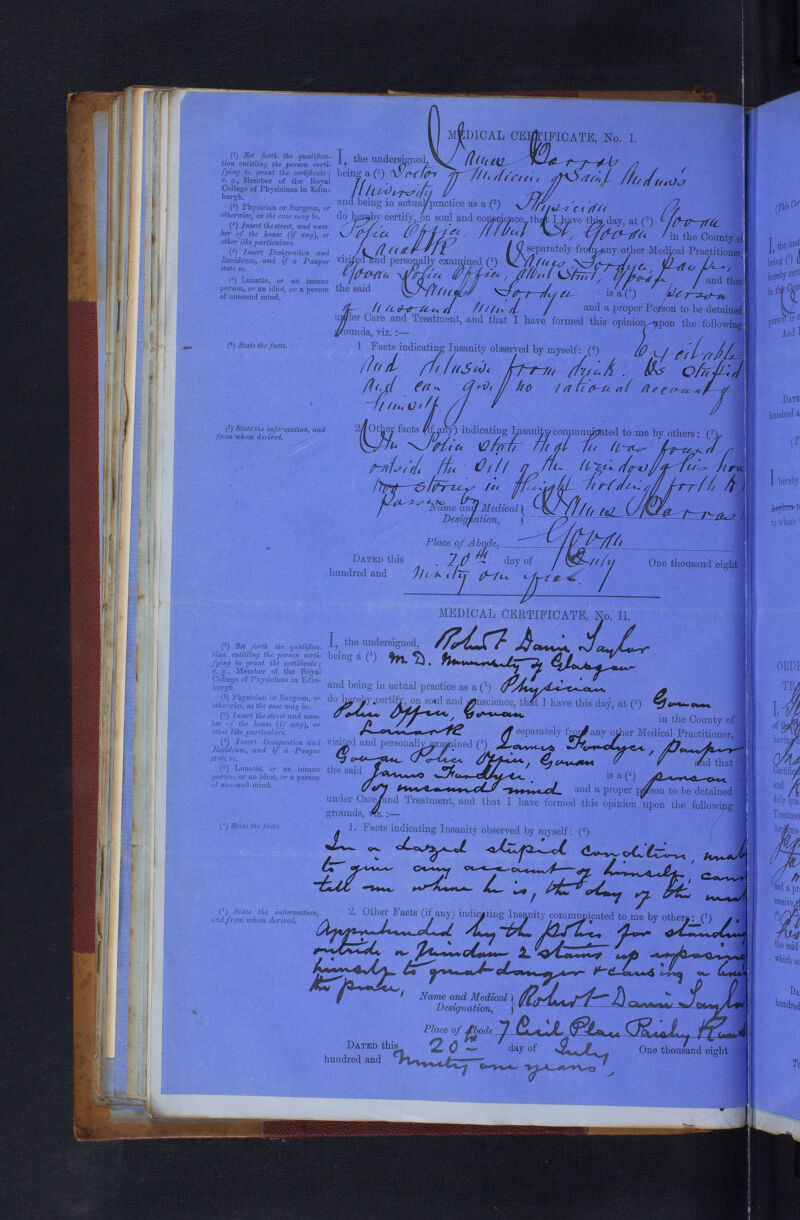 MEDICAL CERTIFICATE, No. I.
(¹) Set forth the qualifica-
tion entitling the person certi-
fying to grant the certificate;
e. g., Member of the Royal
College of Physicians in Edin-
burgh.
(²) Physician or Surgeon, or
otherwise, as the case may be.
(³) Insert the street, and num-
ber of the house (if any), or
other like particulars.
(⁴) Insert Designation and
Residence, and if a Pauper
state so.
(⁵) Lunatic, or an insane
person, or an idiot, or a person
of unsound mind.
I, the undersigned, James Barras
being a (¹) Doctor of Medicine of Saint Andrew's
University
and being in actual practice as a (²) Physician
do hereby certify, on soul and conscience, that I have this day, at (³) Govan
Police Office, Albert St, Govan in the County of
Lanark separately from any other Medical Practitioner,
visited and personally examined (⁴) James Fordyce, Pauper,
Govan Police Office, Albert Street, Govan and that
the said James Fordyce is a (⁵) person
of unsound mind and a proper Person to be detained
under Care and Treatment, and that I have formed this opinion upon the following
grounds, viz. :—
(⁶) State the facts.
1 Facts indicating Insanity observed by myself: (⁶) Excitable
and delusive from drink. Is stupid
and can give no rational account of
himself
(⁷) State the information, and
from whom derived.
2 Other facts (if any) indicating Insanity communicated to me by others: (⁷)
The Police state that he was found
outside the sill of the window of his
two stories in height holding forth to
passers by
Name and Medical Designation, James Barras
Place of Abode, Govan
DATED this 20th day of July One thousand eight
hundred and ninety one years
MEDICAL CERTIFICATE, No. II.
(¹) Set forth the qualifica-
tion entitling the person certi-
fying to grant the certificate;
e. g., Member of the Royal
College of Physicians in Edin-
burgh
(²) Physician or Surgeon, or
otherwise, as the case may be.
(³) Insert the street and num-
ber of the house (if any), or
other like particulars.
(⁴) Insert Designation and
Residence, and if a Pauper
state so.
(⁵) Lunatic, or an insane
person, or an idiot, or a person
of unsound mind.
I, the undersigned, Robert Davin Taylor
being a (¹) M.D. University of Glasgow
and being in actual practice as a (²) Physician
do hereby certify, on soul and conscience, that I have this day, at (³) Govan
Police Office, Govan in the County of
Lanark separately from any other Medical Practitioner,
visited and personally examined (⁴) James Fordyce, Pauper
Govan Police Office, Govan and that
the said James Fordyce is a (⁵) person
of unsound mind and a proper person to be detained
under Care and Treatment, and that I have formed this opinion upon the following
grounds, viz. :—
(⁶) State the facts.
1. Facts indicating Insanity observed by myself: (⁶)
In a dazed stupid condition,
to give any account of himself,
tell me where he is, the day of the
(⁷) State the information,
and from whom derived.
2. Other Facts (if any) indicating Insanity communicated to me by others: (⁷)
Apprehended by the police for standing
outside a window 2 stairs up exposing
himself to great danger & causing a
the place,
Name and Medical Designation, Robert Davin Taylor
Place of Abode 7 Cecil Place Paisley Road
DATED this 20th day of July One thousand eight
hundred and Ninety one years,